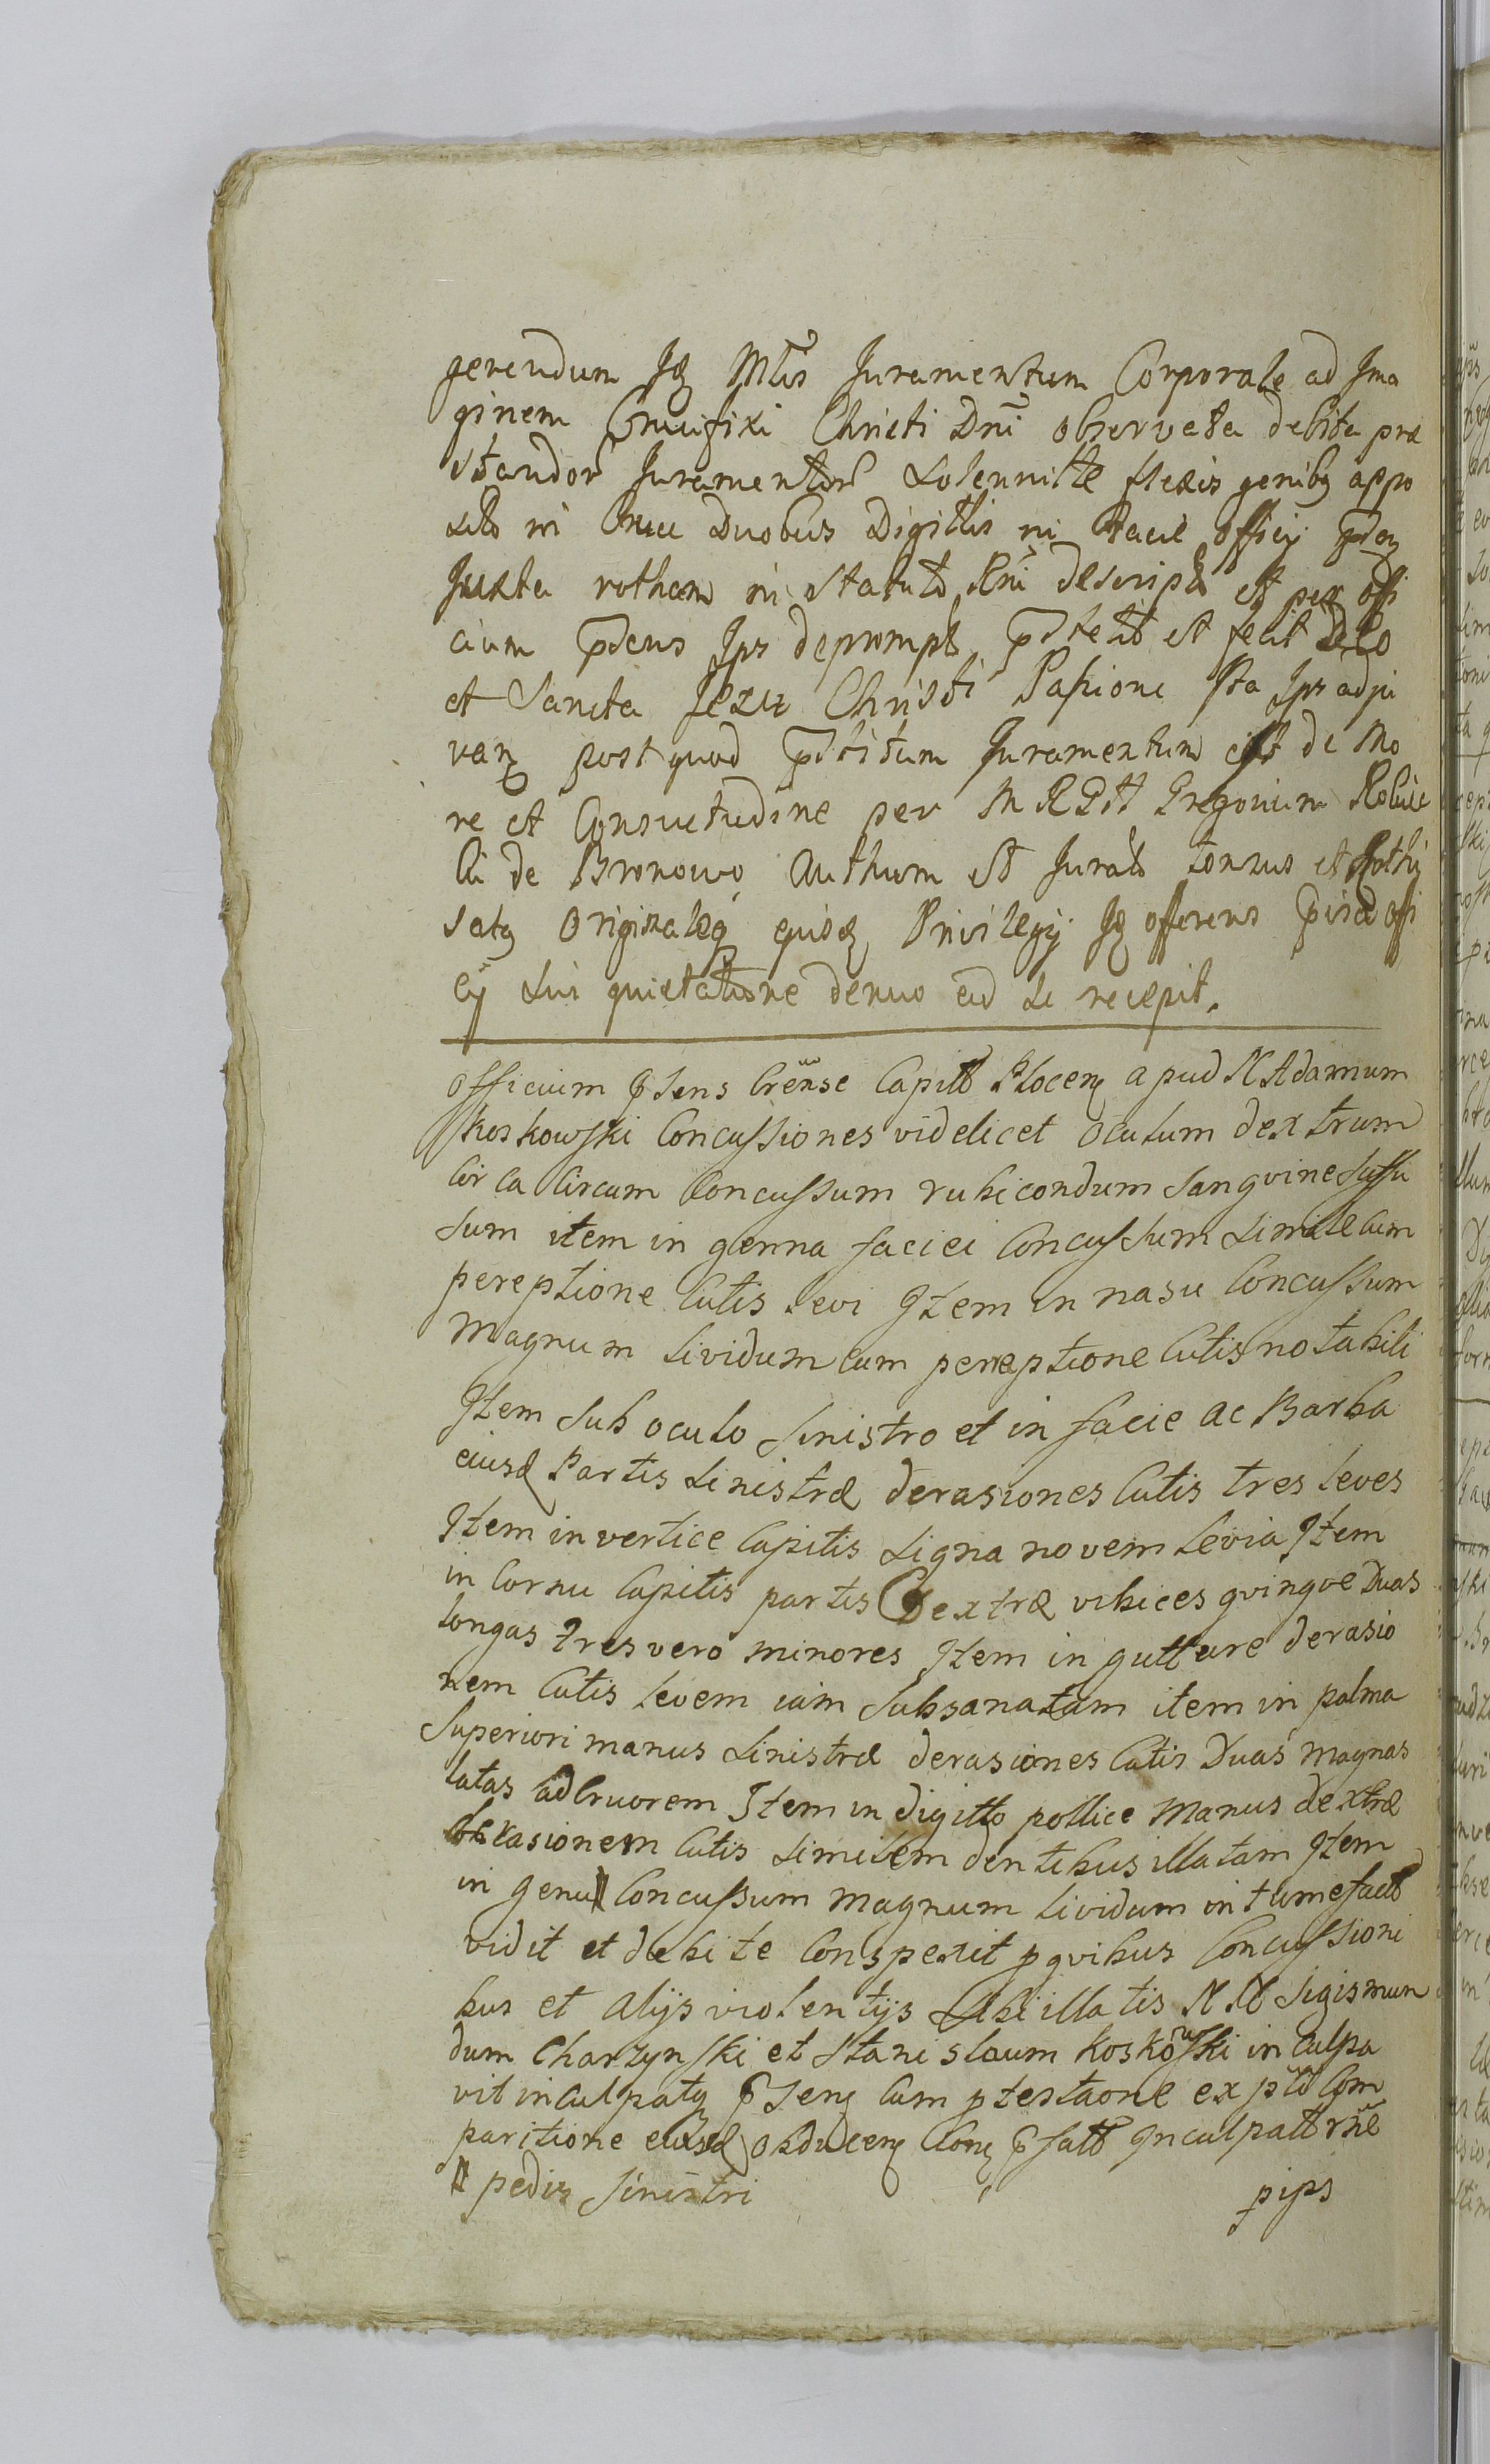 gerendum Jd Mtis Juramentum Corporale ad Jma
ginem Crucifixi Christi Dni observata debita præ
standor Juramentor Solennitte flexis genibq appo
sito in Cruce Duobus Digittis in facie officij
Juxta rotham in Statuto Rni descript et per offi
cium pdens Jps deprompt pstetit et fecit Deo
et Sancta Jezu Christi Passione Jta Jps adju
van post quod pstitum Juramentum est de Mo
re et Consvetudine per Gregorium
de Bronowo Authum et Jurato tonsus et
Originaleq eiusd Privilegij Jd offerens offi
cij Sui quietatione denuo ad Se recepit.
Officium psens Crense Capitt Plocen apud N Adamum
Koskowski Concussiones videlicet oculum dextrum
Circa Circum Concussum rubicondum Sangvine Suffu
Sum item in genna faciei Concussum Simile cum
pereptione Cutis levi Jtem in nasu Concussum
Magnum lividum cum pereptione Cutis notabili
Jtem Sub oculo Sinistro et in facie ac Barba
eiusd Partis Sinistræ derasiones Cutis tres leves
Jtem in vertice Capitis Signa novem levia Jtem
in Cornu Capitis partis Dextræ vibices qvinqve Duas
longas tres vero minores Jtem in gutture derasio
nem Cutis levem iam Subsanatam item in palma
Superiori manus Sinistræ derasiones Cutis Duas magnas
latas ad Cruorem Jtem in digitto pollice Manus dextræ
Cutis Similem dentibus illatam Jtem
in genu Concussum Magnum lividum intumefact
vidit et debite Conspexit p qvibus Concussioni
bus et alijs violentijs Sibi illatis N N Sigismun
dum Charzynski et Stanislaum Koskowski inculpa
vit inculpatq psen Cum ptestaone ex Com
paritione eiusd obducen Con psatt Jnculpatt rne
pedis Sinistri pips